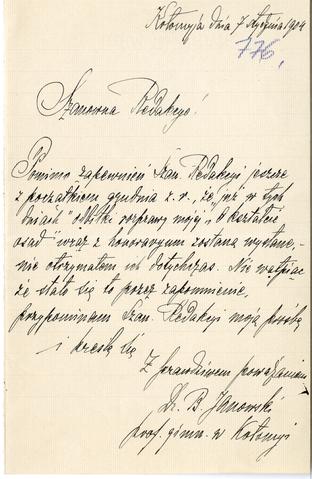 Kołomyja dnia 7 stycznia 1904
776,
Szanowna Redakcyo!
Pomimo zapewnień Szan. Redakcyi jeszcze
z początkiem grudnia z. r., że „już w tych
dniach" odbitki rozprawy mojej „O kształcie
osad" wraz z honoraryum zostaną wysłane,-
nie otrzymałem ich dotychczas. Nie wątpiąc
że stało się to przez zapomnienie,
przypominam Szan. Redakcyi moją prośbę
i kreślę się
Z prawdziwem poważaniem
Dr. B. Janowski
prof. gimn. w Kołomyi